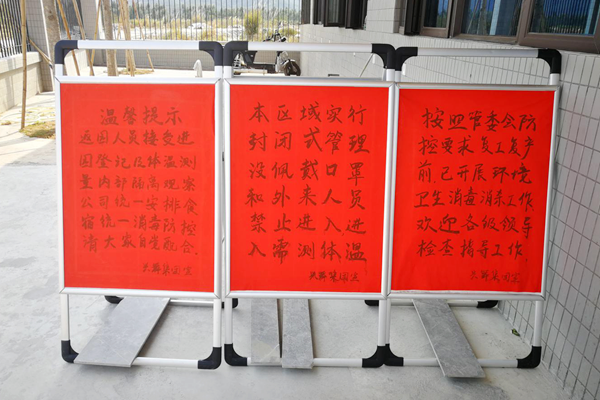 温馨提示
返园人员接受进
园登记及体温测
量内部隔离观察
公司统一安排食
宿统一消毒防控
请大家自觉配合.
天辉集团宣
本区域实行
封闭式管理
没佩戴口罩
和外来人员
禁止进入进
入需测体温
天辉集团宣
按照管委会防
控要求复工复产
前已开展环境
卫生消毒消杀工作
欢迎各级领导
检查指导工作
天辉集团宣